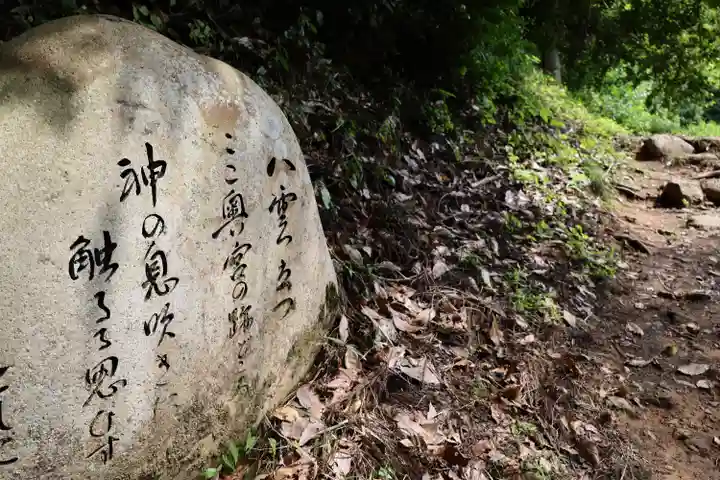 八雲立つ
ここ奥宮の跡どころ
神の息吹きに
触るる思ひす